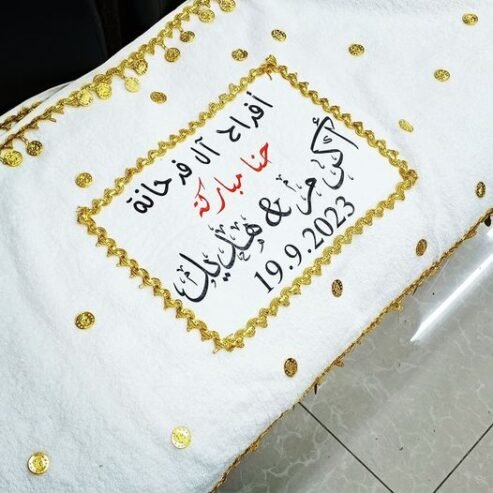 أفراح آل فرحانة
حنا مباركة
أكرم & هديل
19.9.2023